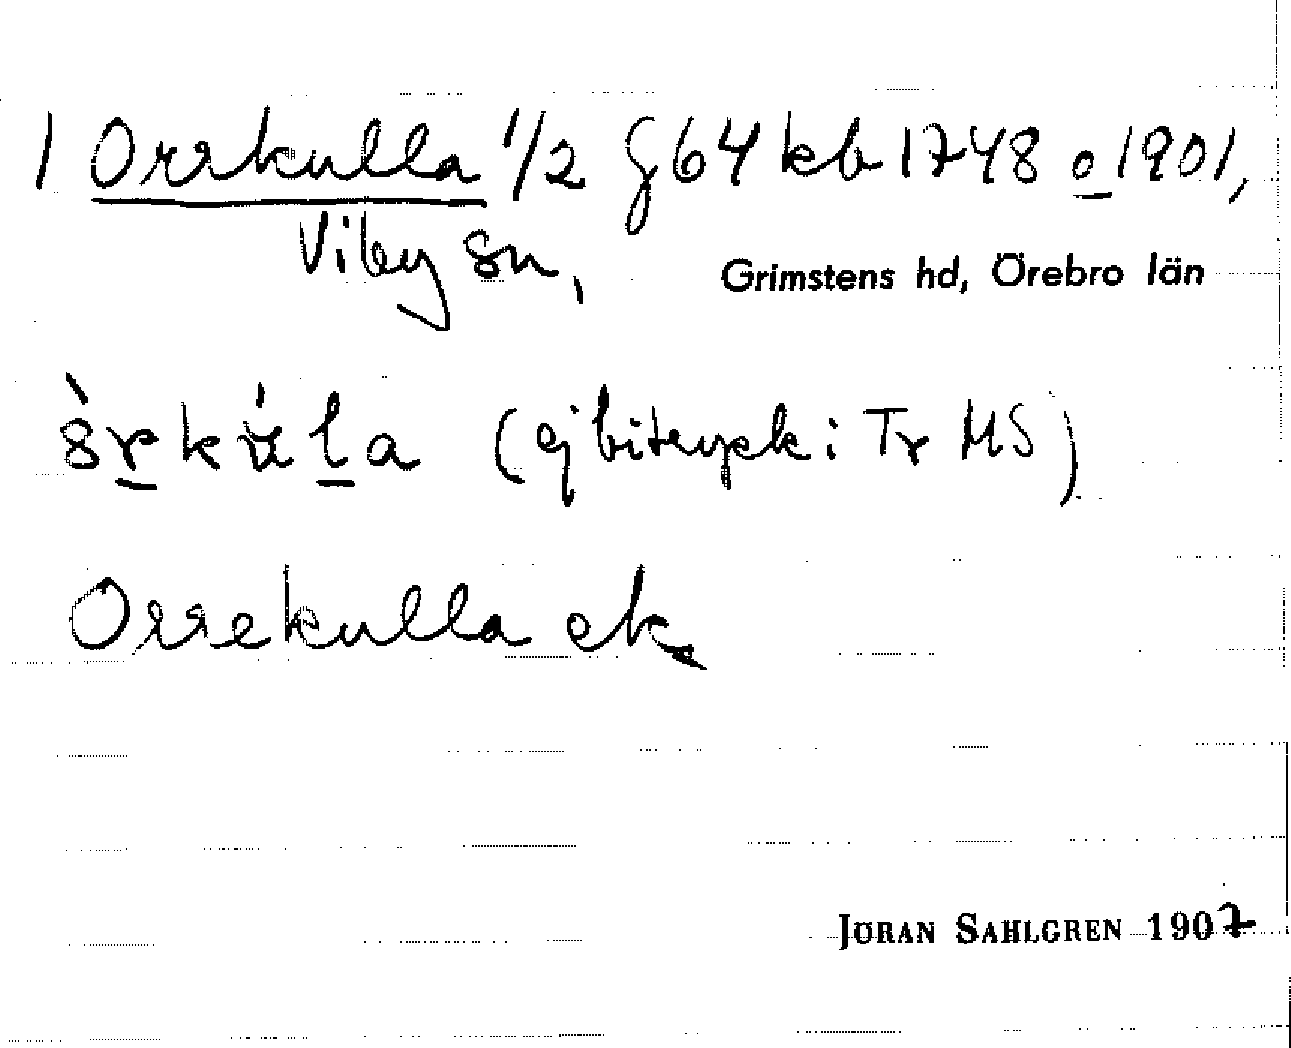 1 Orrkulla 1/2 g 64 kb 1748 o 1901,
Viby sn, Grimstens hd, Örebro län
(ej bitryck i Tr MS)
Orrekulla ek
JÖRAN SAHLGREN 1907